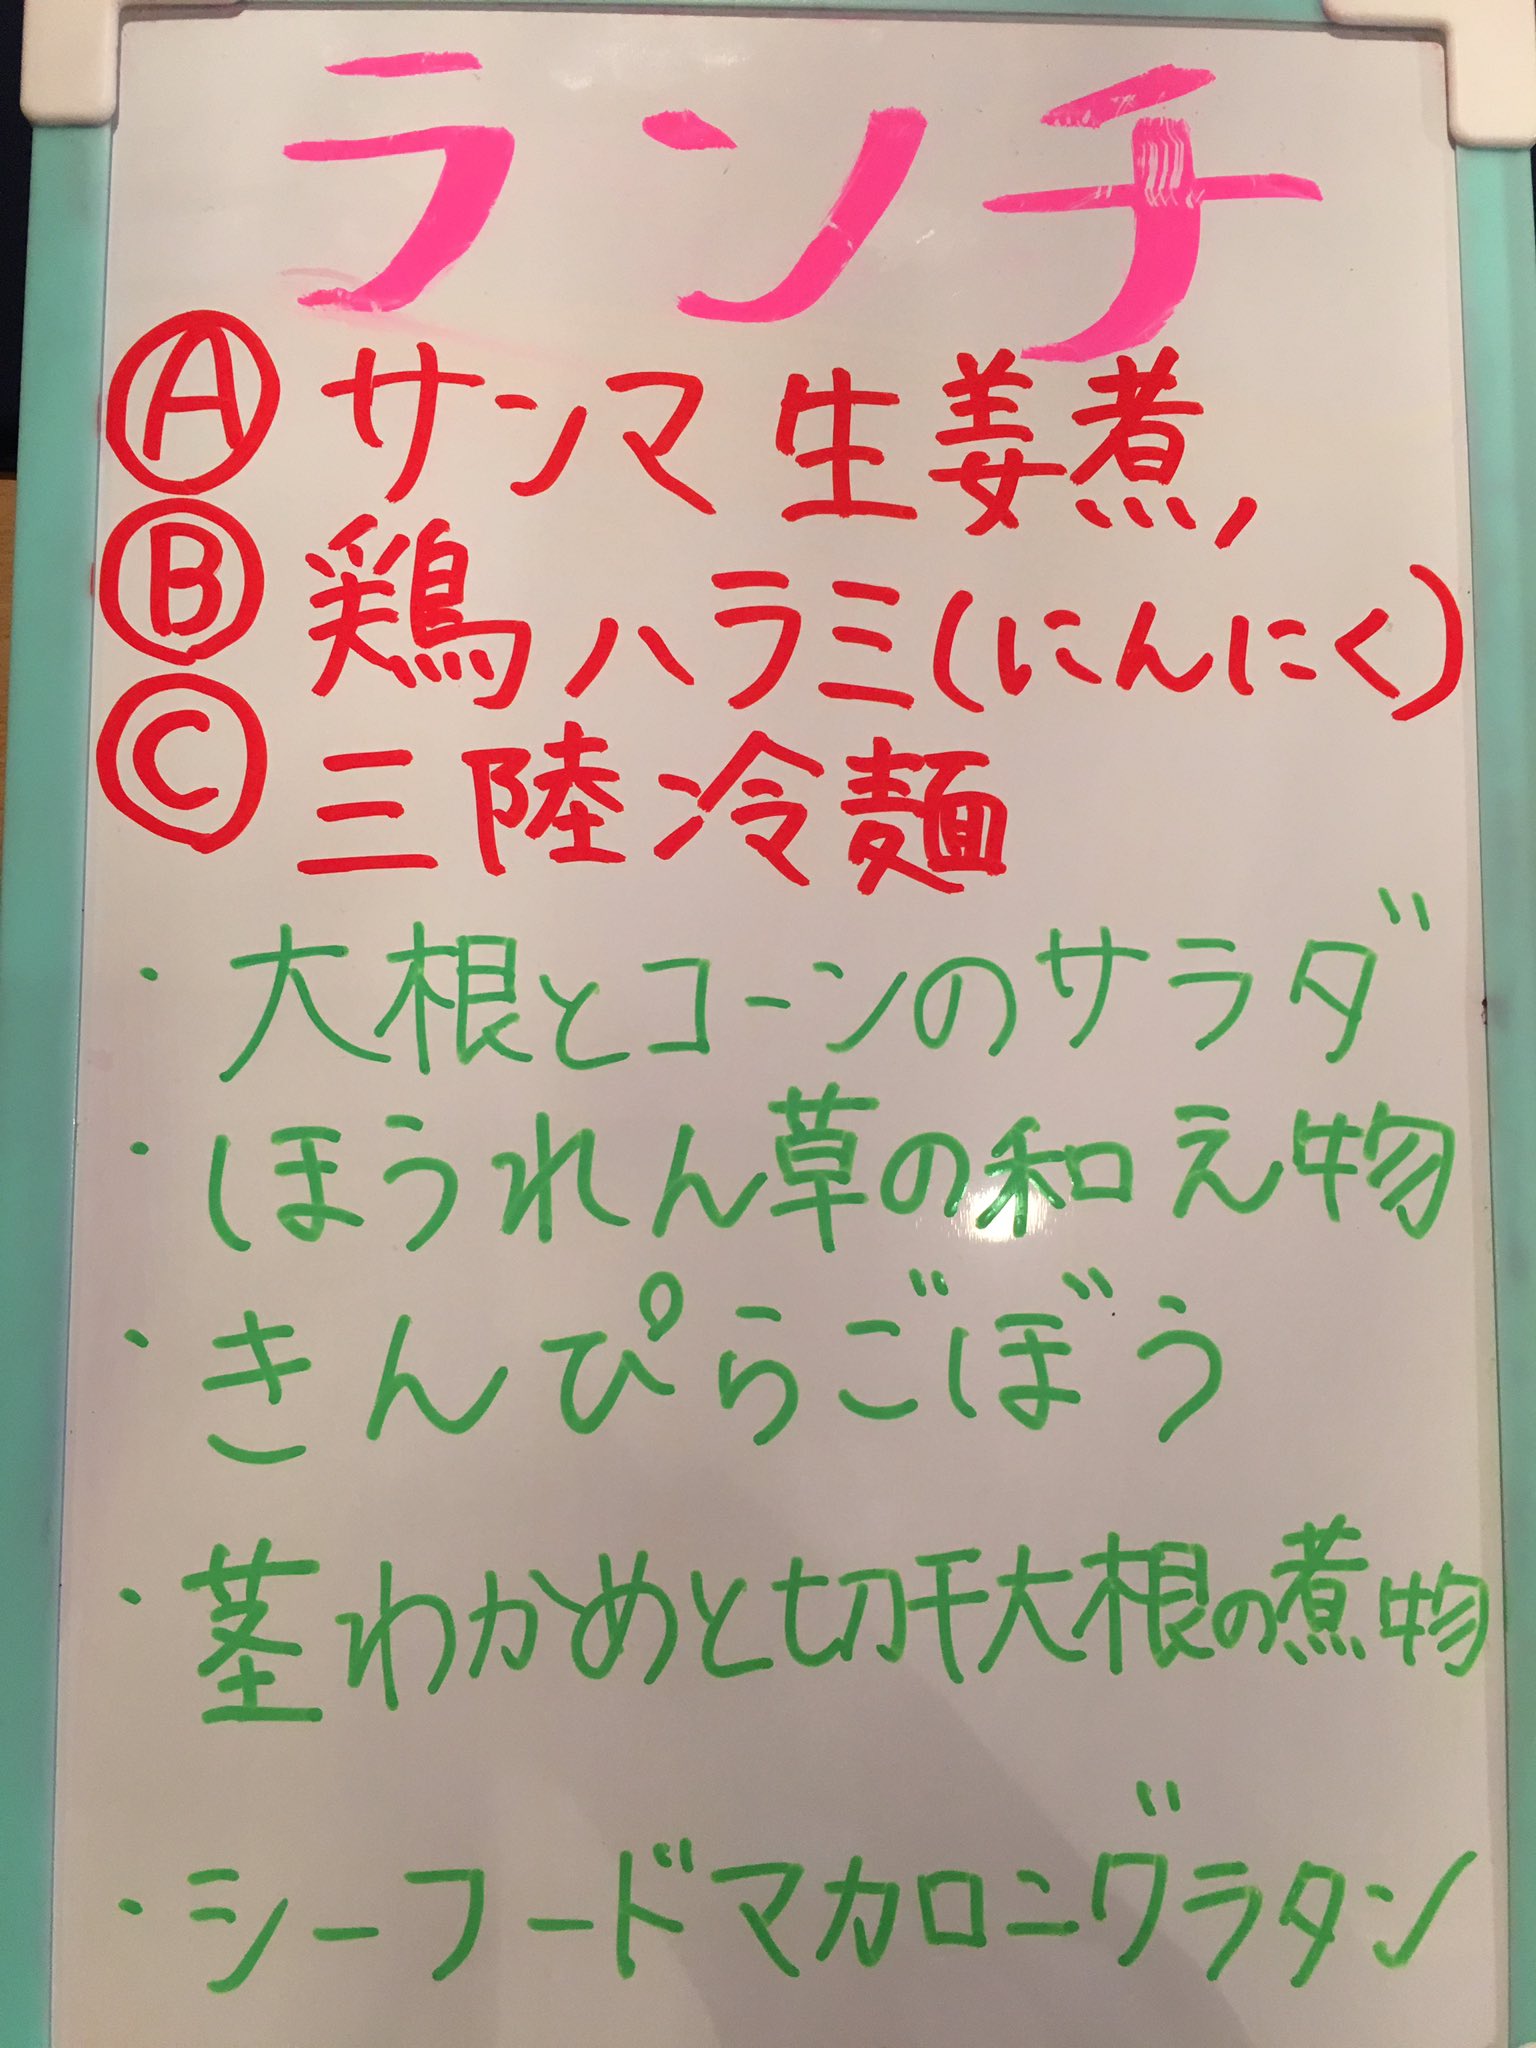 ランチ
Ⓐ サンマ生姜煮
Ⓑ 鶏ハラミ(にんにく)
Ⓒ 三陸冷麺
・大根とコーンのサラダ
・ほうれん草の和え物
・きんぴらごぼう
・茎わかめと切干大根の煮物
・シーフードマカロニグラタン